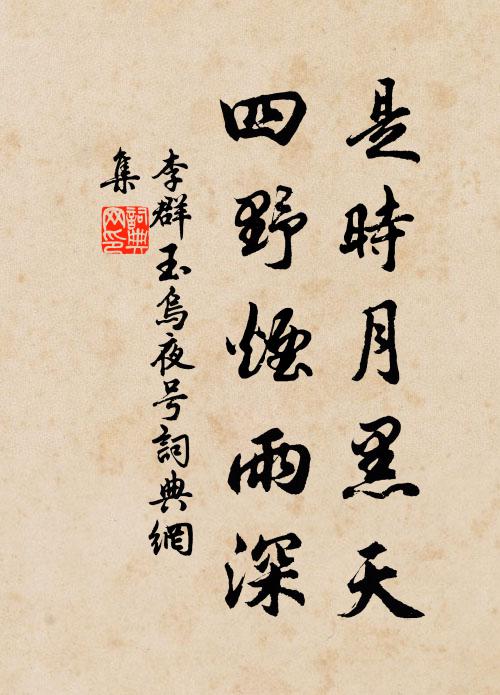 是時月黑天
四野煙雨深
李群玉烏夜号詞典網
集
詞典网印